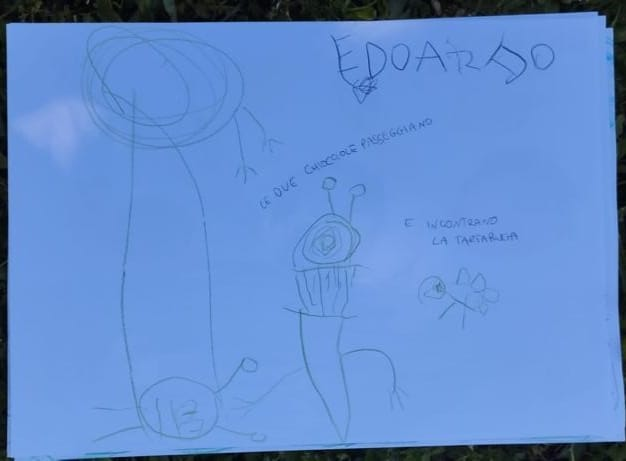 EDOARDO
LE DUE CHIOCCIOLE PASSEGGIANO
E INCONTRANO
LA TARTARUGA